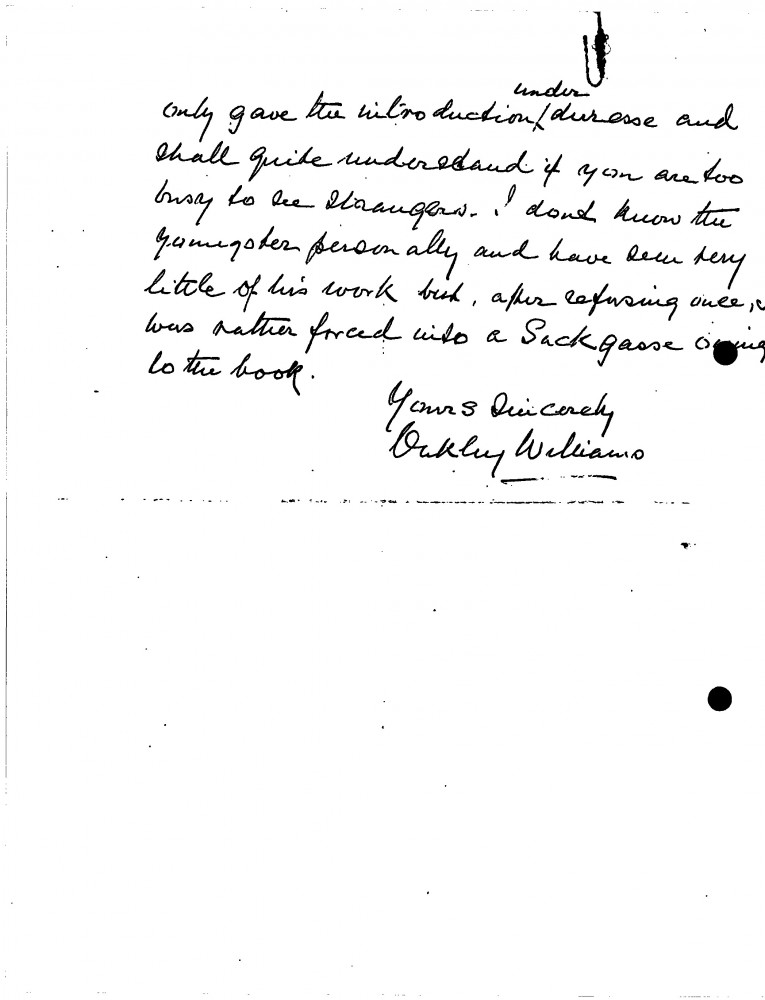 only gave the introduction / under duresse and
shall quite understand if you are too
busy to see strangers. I dont know the
youngster personally and have seen very
little of his work but, after refusing once,
was rather forced into a Sackgasse owing
to the book.
Yours Sincerely
Oakley Williams